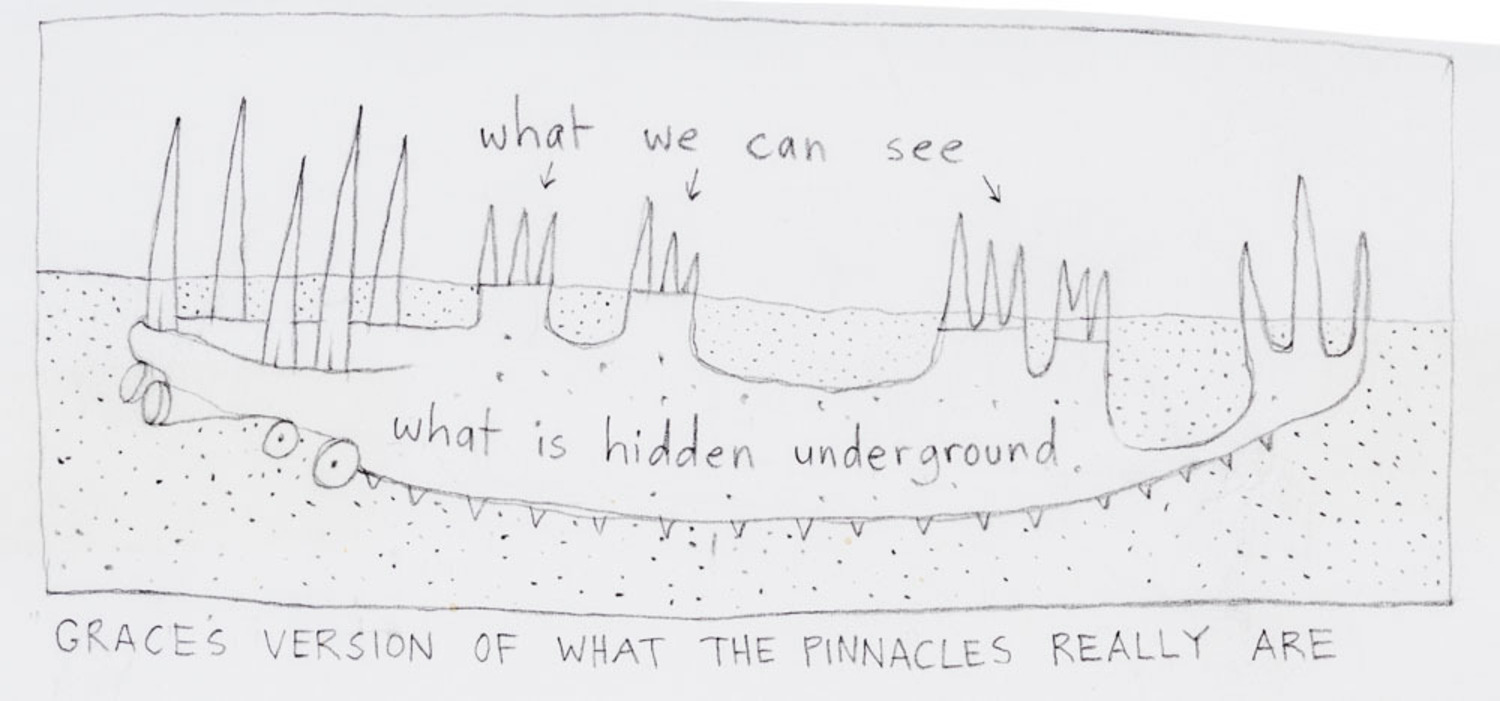 what we can see
what is hidden underground.
GRACE'S VERSION OF WHAT THE PINNACLES REALLY ARE